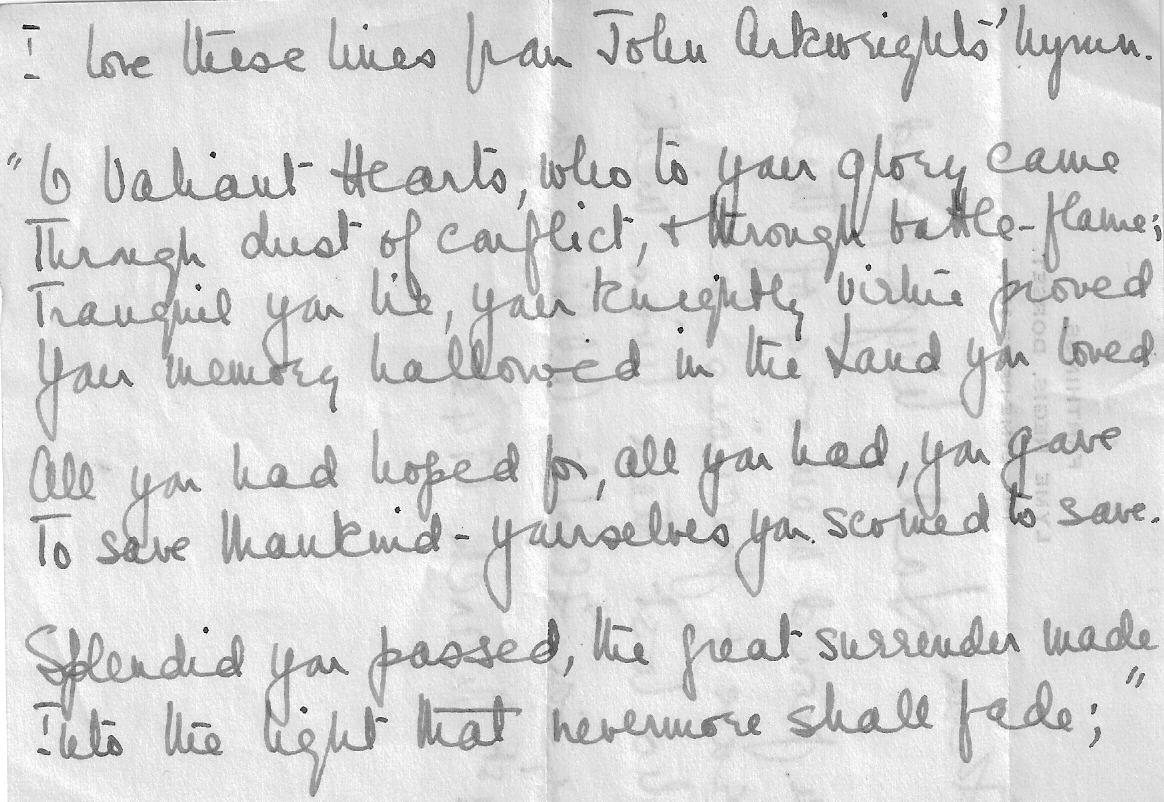 I love these lines from John Arkwrights' hymn.
"O Valiant Hearts, who to your glory came
Through dust of conflict, & through battle-flame;
Tranquil you lie, your knightly virtue proved
Your memory hallowed in the Land you loved
All you had hoped for, all you had, you gave
To save Mankind - yourselves you scorned to save.
Splendid you passed, the great surrender made
Into the light that nevermore shall fade;"
LYME REGIS, DORSET